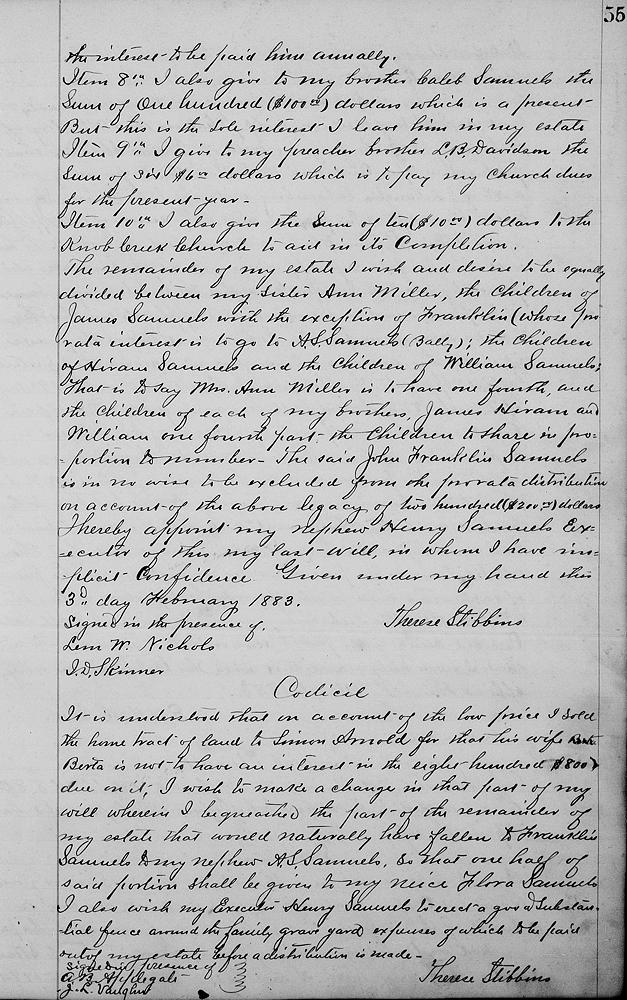 55
the interest to be paid him annually.
Item 8th I also give to my brother Caleb Samuels the
Sum of One hundred ($100.00) dollars which is a present
But this is the sole interest I leave him in my estate
Item 9th I give to my preacher brother L.B. Davidson the
Sum of six $6.00 dollars which is to pay my Church dues
for the present year-
Item 10th I also give the Sum of ten ($10.00) dollars to the
Knob Creek Church to aid in its Completion.
The remainder of my estate I wish and desire to be equally
divided between my sister Ann Miller, the Children of
James Samuels with the exception of Franklin (whose pro
rata interest is to go to A.S. Samuels (Bally); the Children
of Hiram Samuels and the Children of William Samuels;
that is to say Mrs. Ann Miller is to have one fourth, and
the children of each of my brothers, James Hiram and
William one fourth part- the Children to share in pro=
=portion to number- The said John Franklin Samuels
is in no wise to be excluded from the prorata distribution
on account of the above legacy of two hundred ($200.00) dollars
I hereby appoint my nephew Henry Samuels Ex=
=ecutor of this my last will, in whom I have im=
plicit Confidence Given under my hand this
3d day February 1883.
Signed in the presence of. Therese Stibbins
Lem W. Nichols
J.D. Skinner
Codicil
It is understood that on account of the low price I sold
the home tract of land to Simon Arnold for that his wife
Berta is not to have an interest in the eight hundred $800)
due on it, I wish to make a change in that part of my
will wherein I bequeathed the part of the remainder of
my estate that would naturally have fallen to Franklin
Samuels to my nephew A.S. Samuels, so that one half of
said portion shall be given to my neice Flora Samuels
I also wish my Executor Henry Samuels to erect a good Substan-
tial fence around the family grave yard expenses of which to be paid
out of my estate before a distribution is made-
Signed in presence of
A.B. Applegate Therese Stibbins
J.L. Vaughn